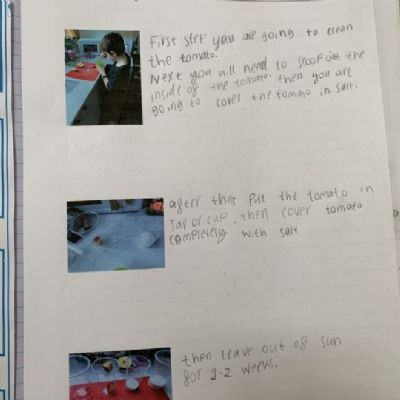 First step you are going to clean
the tomato.
Next you will need to scoop out the
inside of the tomato. then you are
going to cover the tomato in salt.
after that put the tomato in
Jar or cup. then cover tomato
completely with salt
then leave out of sun
for 1-2 weeks.